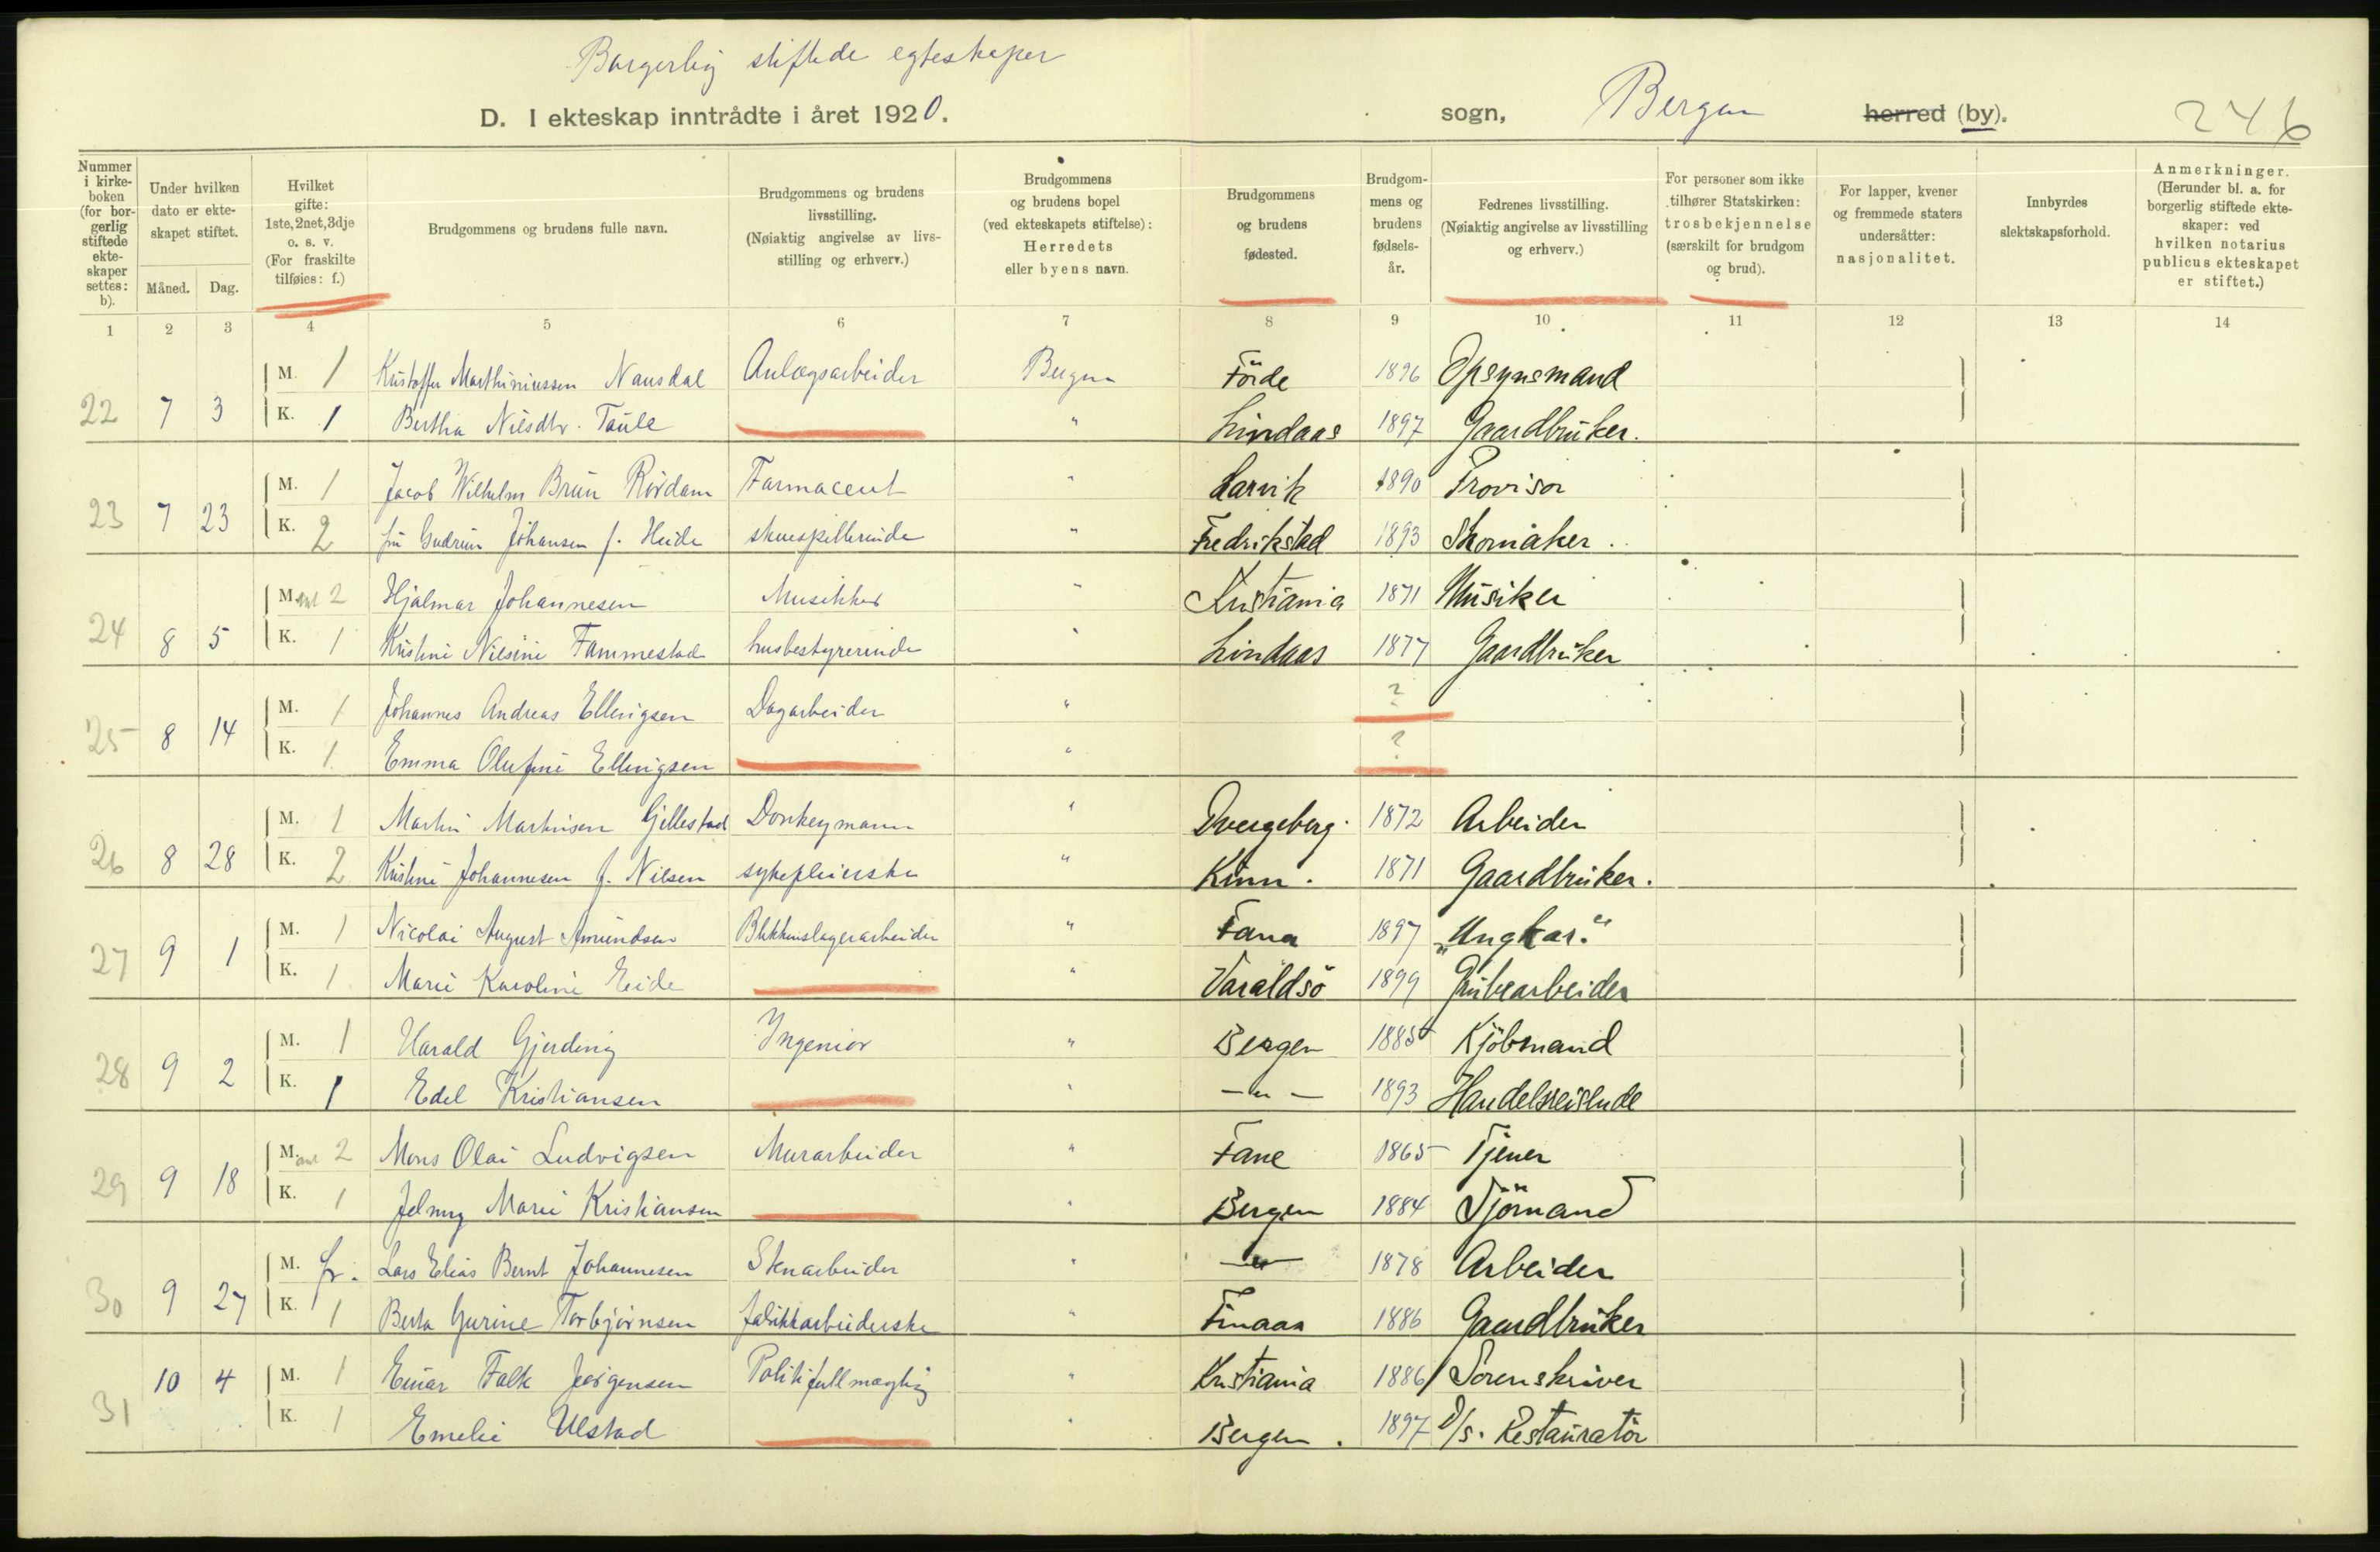 Borgerlig stiftede egteskaper
D. I ekteskap inntrådte i året 1920.
sogn, Bergen herred (by). 246
Nummer i kirke-boken (for bor-gerlig stiftede ekte-skaper settes: b).
Under hvilken dato er ekte-skapet stiftet.
Måned. Dag.
Hvilket gifte: 1ste, 2net, 3dje o. s. v. (For fraskilte tilføies: f.)
Brudgommens og brudens fulle navn.
Brudgommens og brudens livsstilling. (Nøiaktig angivelse av livs-stilling og erhverv.)
Brudgommens og brudens bopel (ved ekteskapets stiftelse): Herredets eller byens navn.
Brudgommens og brudens fødested.
Brudgom-mens og brudens fødsels-år.
Fedrenes livsstilling. (Nøiaktig angivelse av livsstilling og erhverv.)
For personer som ikke tilhører Statskirken: trosbekjennelse (særskilt for brudgom og brud).
For lapper, kvener og fremmede staters undersåtter: nasjonalitet.
Innbyrdes slektskapsforhold.
Anmerkninger. (Herunder bl. a. for borgerlig stiftede ekte-skaper: ved hvilken notarius publicus ekteskapet er stiftet.)
1 2 3 4 5 6 7 8 9 10 11 12 13 14
M. 1 Kristoffer Marthiniussen Nausdal Anlægsarbeider Bergen Förde 1896 Opsynsmand
22 7 3 K. 1 Bertha Nilsdtr. Taule " Lindaas 1897 Gaardbruker.
M. 1 Jacob Wilhelm Brun Rördam Farmaceut " Larvik 1890 Provisor
23 7 23 K. 2 fru Gudrun Johansen f. Heide skuespillerinde " Fredrikstad 1893 Skomaker.
M. 2 Hjalmar Johannesen Musikker " Kristiania 1871 Musiker
24 8 5 K. 1 Kristine Nilsine Fammestad husbestyrerinde " Lindaas 1877 Gaardbruker
M. 1 Johannes Andreas Ellingsen Dagarbeider " ?
25 8 14 K. 1 Emma Olufine Ellingsen " ?
M. 1 Martin Martinsen Gjellestad Donkeymann " Dvergeberg. 1872 Arbeider
26 8 28 K. 2 Kristine Johannesen f. Nilsen sykepleierske " Kinn. 1871 Gaardbruker.
M. 1 Nicolai August Amundsen Blikkenslagerarbeider " Fana 1897 „Ungkar."
27 9 1 K. 1 Marie Karoline Eide " Varaldsö 1899 Grubearbeider
M. 1 Harald Gjerding Ingeniör " Bergen 1885 Kjöbmand
28 9 2 K. 1 Edel Kristiansen " —"— 1893 Handelsreisende
M. 2 Mons Olai Ludvigsen Murarbeider " Fane 1865 Tjener
29 9 18 K. 1 Jelmy Marie Kristiansen " Bergen 1884 Sjömand
M. fr. Lars Elias Bernt Johannesen Stenarbeider " —"— 1878 Arbeider
30 9 27 K. 1 Berta Gurine Torbjörnsen fabrikkarbeiderske " Finaas 1886 Gaardbruker
10 4 M. 1 Einar Falk Jørgensen Politifullmægtig " Kristiania 1886 Sorenskriver
31 K. 1 Emelie Ulstad " Bergen. 1897 D/s. Restauratör